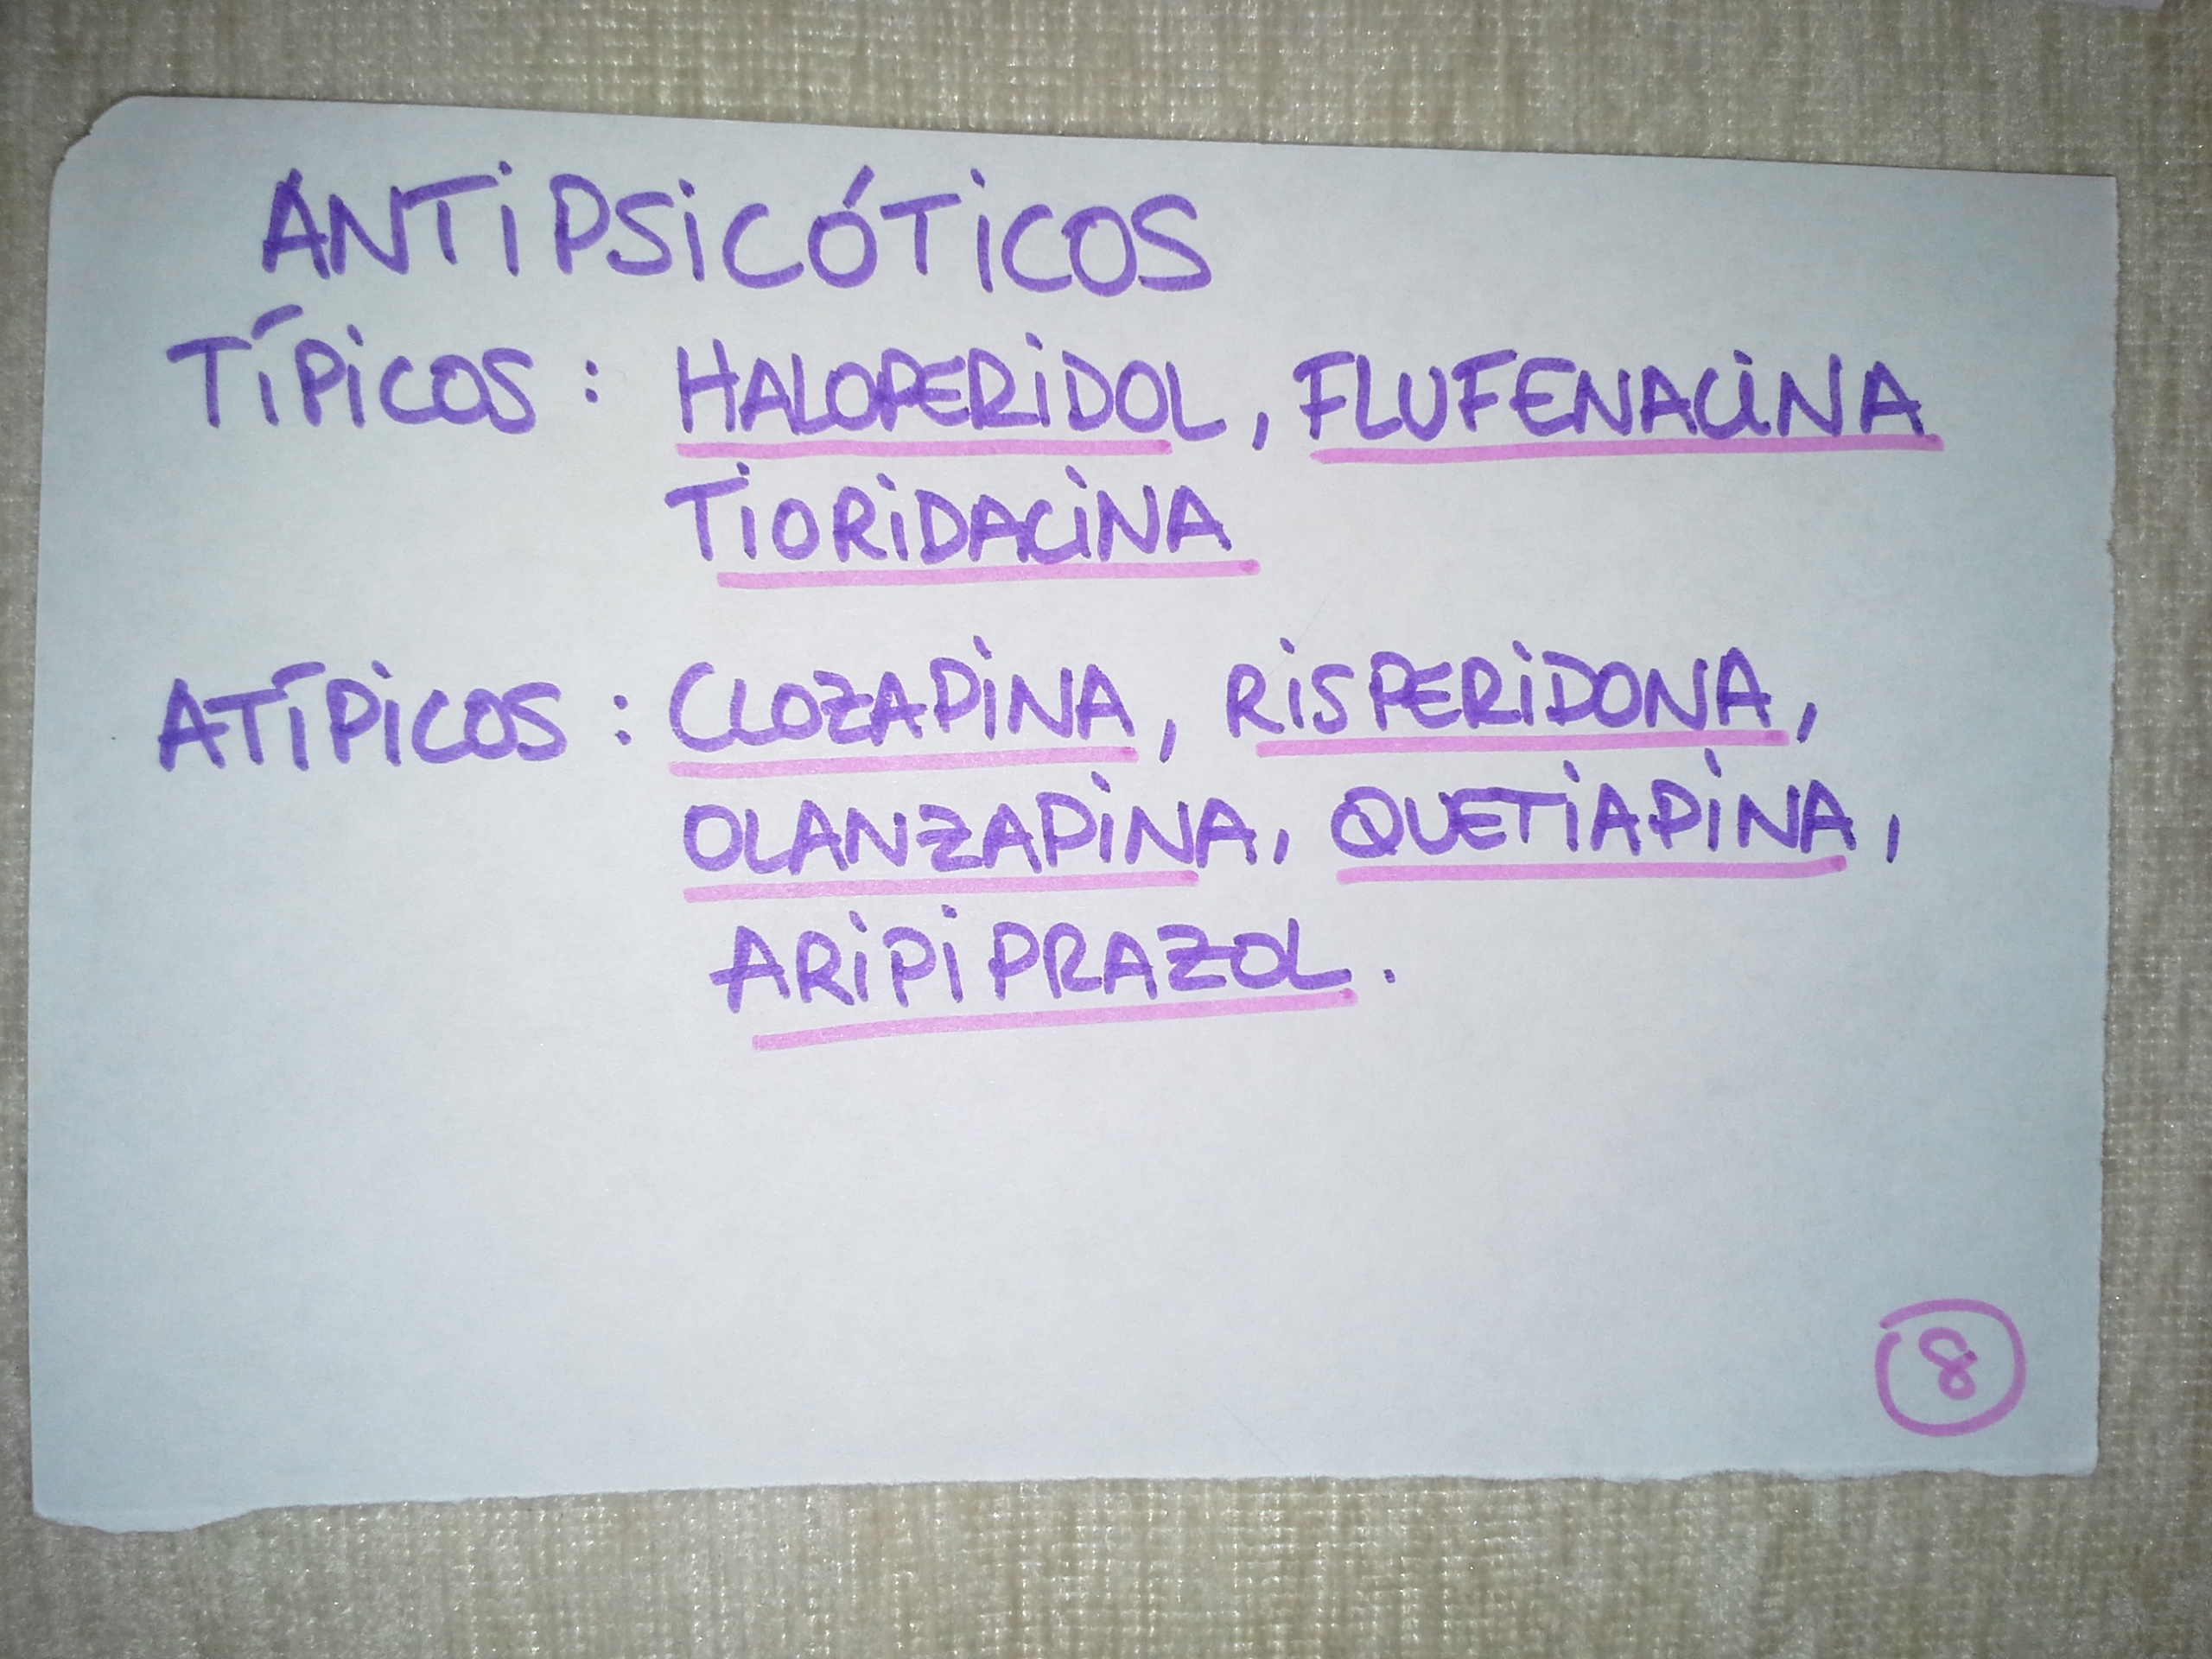 ANTIPSICÓTICOS
TÍPICOS: HALOPERIDOL, FLUFENACINA
TIORIDACINA
ATÍPICOS: CLOZAPINA, RISPERIDONA,
OLANZAPINA, QUETIAPINA,
ARIPIPRAZOL.
8